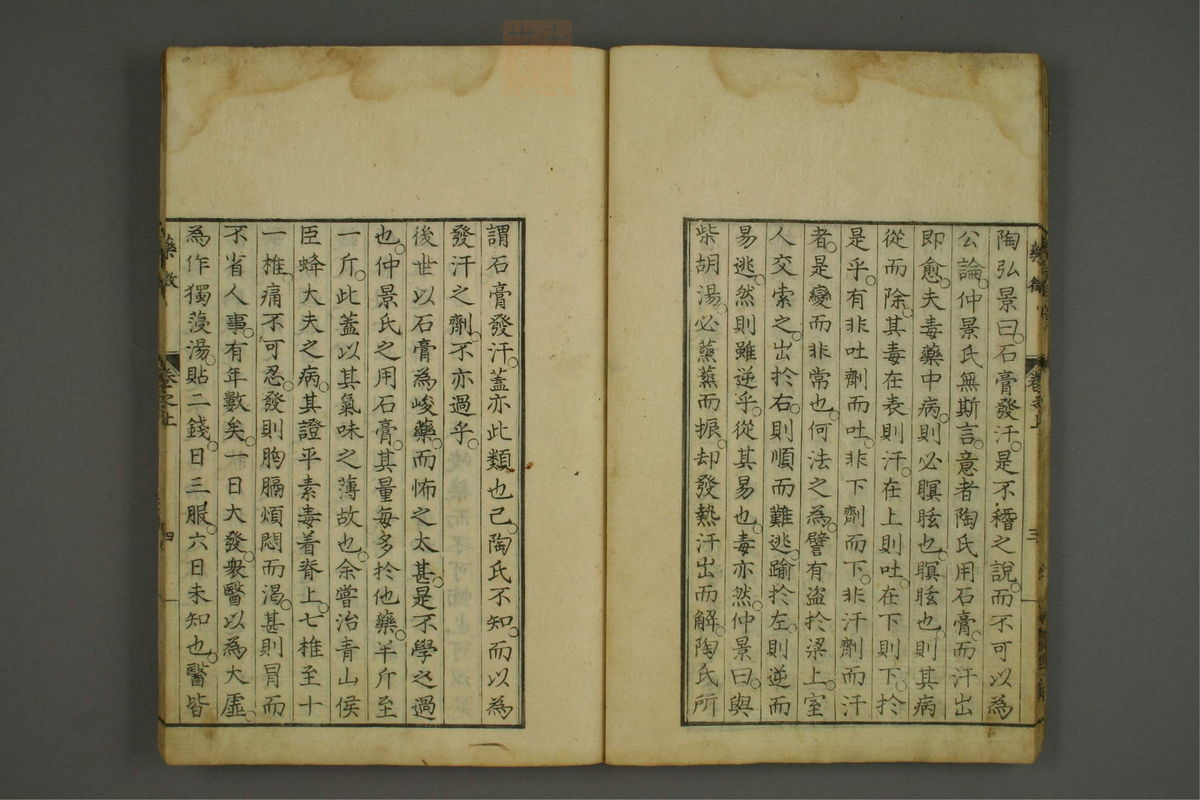 陶弘景曰。石膏發汗。是不稽之說。而不可以為
公論。仲景氏無斯言。意者陶氏用石膏。而汗出
即愈。夫毒藥中病。則必瞑眩也。瞑眩也。則其病
從而除。其毒在表則汗。在上則吐。在下則下。於
是乎。有非吐劑而吐。非下劑而下。非汗劑而汗
者。是變而非常也。何法之為。譬有盗於梁上。室
人交索之。出於右。則順而難逃。踰於左。則逆而
易逃。然則雖逆乎。從其易也。毒亦然。仲景曰。與
柴胡湯。必蒸蒸而振。却發熱汗出而解。陶氏所
藥徵
卷之上
三
謂石膏發汗。蓋亦此類也已。陶氏不知。而以為
發汗之劑。不亦過乎。
後世以石膏為峻藥。而怖之太甚。是不學之過
也。仲景氏之用石膏。其量每多於他藥。半斤至
一斤。此蓋以其氣味之薄故也。余嘗治青山侯
臣蜂大夫之病。其證平素毒着脊上。七椎至十
一椎。痛不可忍。發則胸膈煩悶而渴。甚則冒而
不省人事。有年數矣。一日大發。衆醫以為大虛。
為作獨葠湯。貼二錢。日三服。六日未知也。醫皆
藥徵
卷之上
四